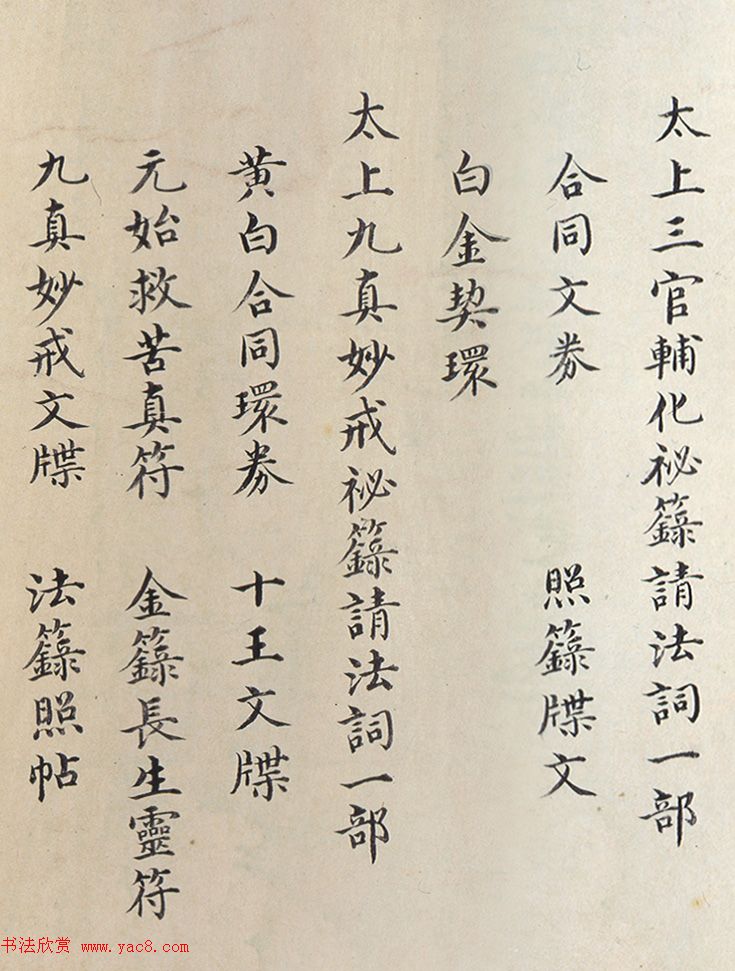 太上三官輔化祕籙請法詞一部
合同文券 照籙牒文
白金契環
太上九真妙戒祕籙請法詞一部
黄白合同環券 十王文牒
元始救苦真符 金籙長生靈符
九真妙戒文牒 法籙照帖
书法欣赏 www.yac8.com